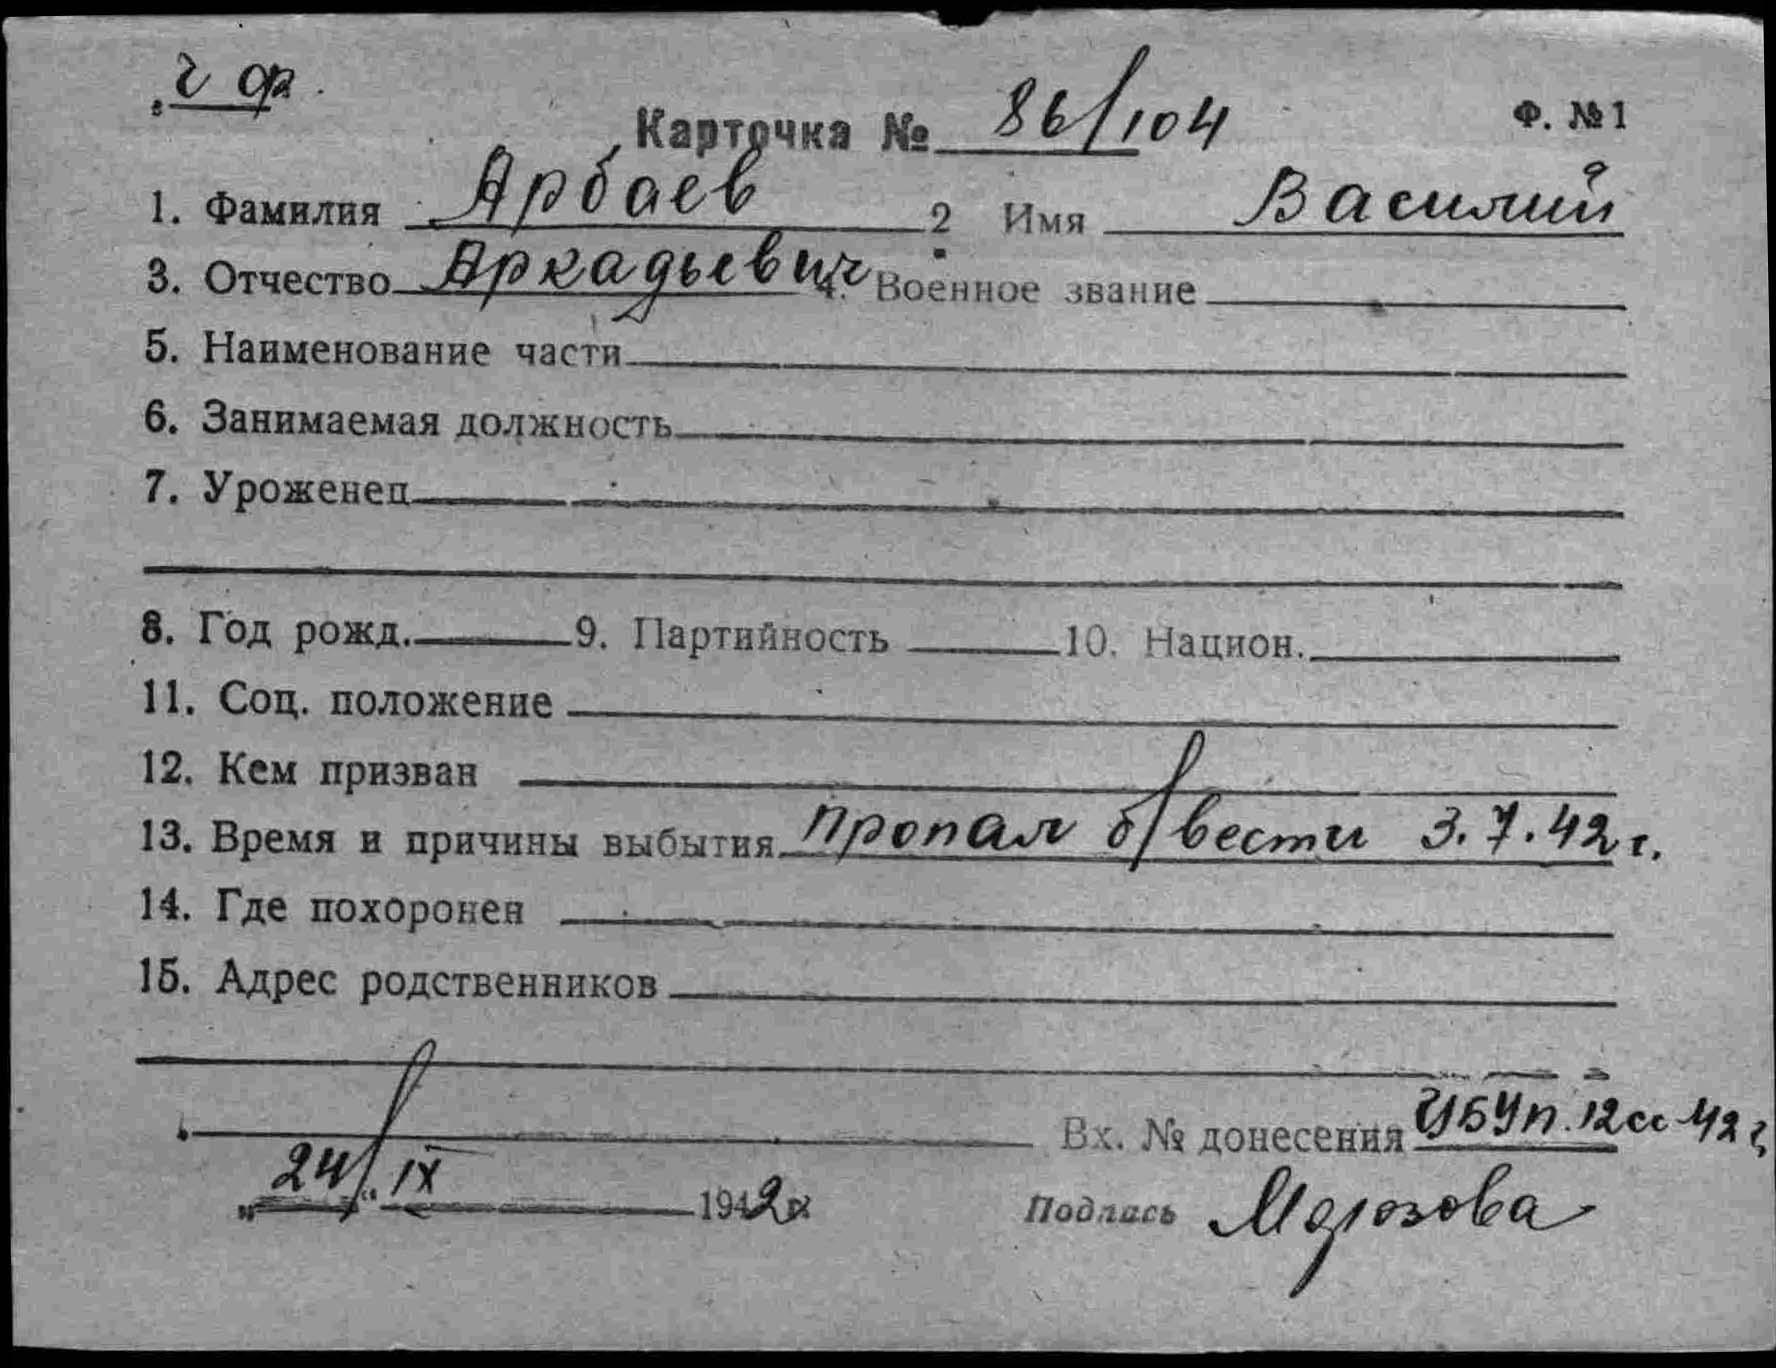 ч ф.
Карточка № 86/104 Ф. №1
1. Фамилия Арбаев 2. Имя Василий
3. Отчество Аркадьевич 4. Военное звание
5. Наименование части
6. Занимаемая должность
7. Уроженец
8. Год рожд. 9. Партийность 10. Национ.
11. Соц. положение
12. Кем призван
13. Время и причины выбытия пропал б/вести 3.7.42 г.
14. Где похоронен
15. Адрес родственников
Вх. № донесения 12сс 42 г
„24“ IX 1942 г Подпись Морозова